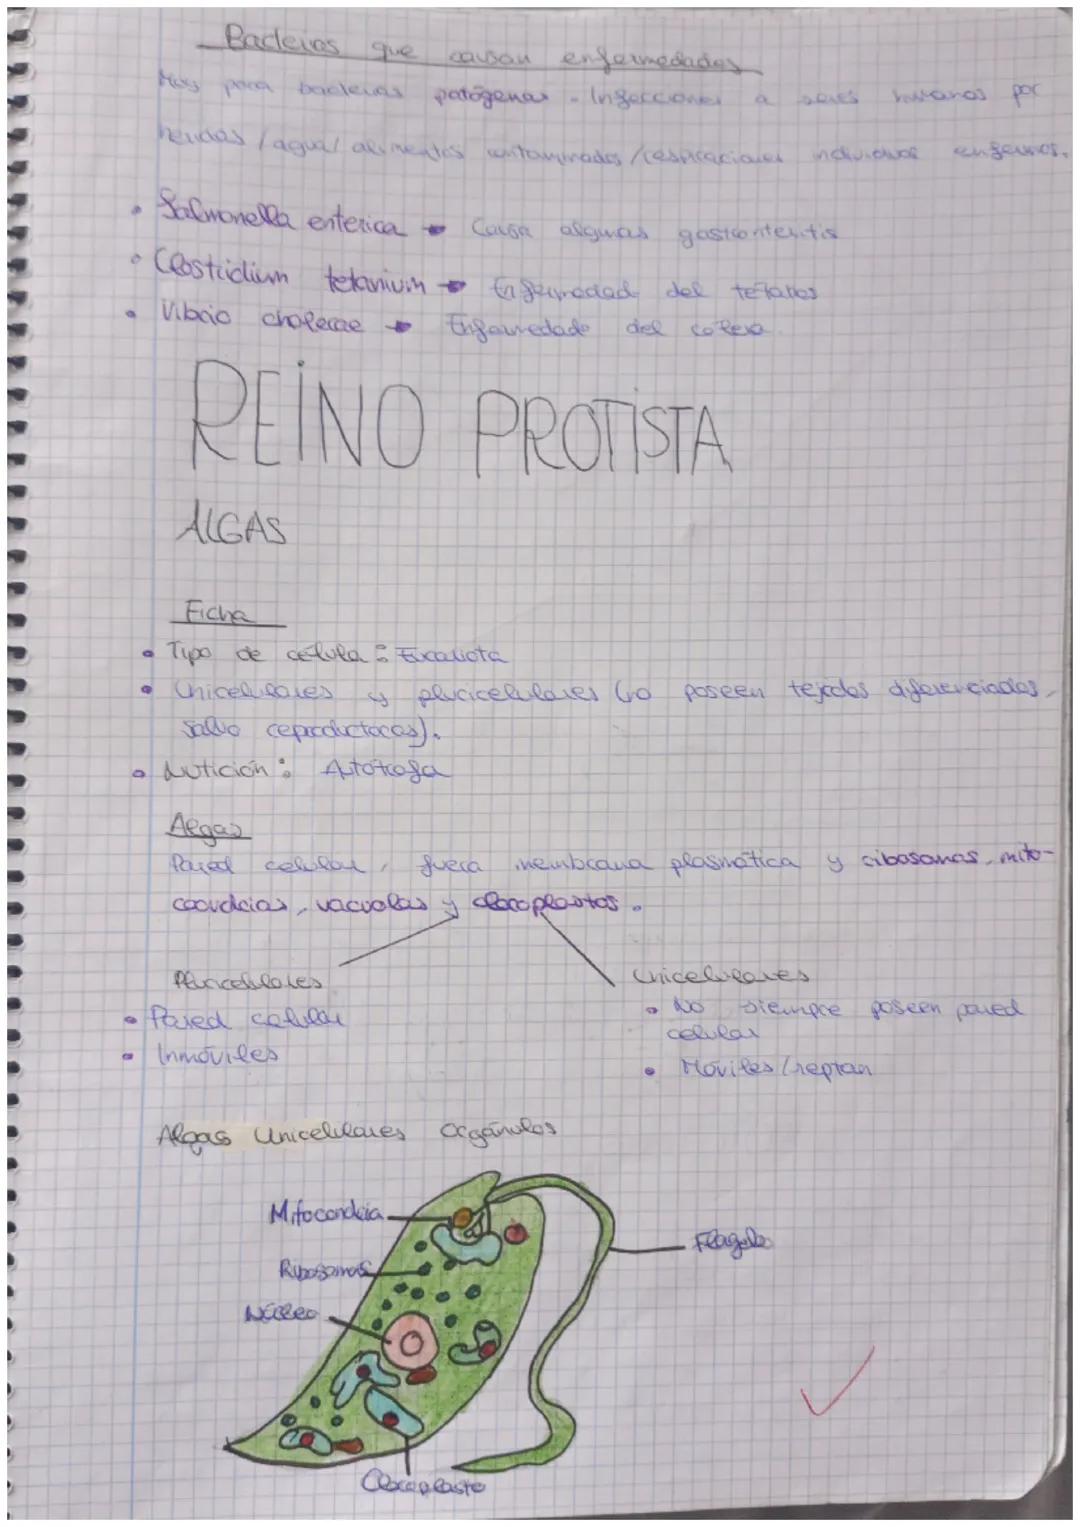 Bacterias que causan enfermedades
Hay poca bacterias patógenas - Infecciones a seres humanos por
heridas / agua / alimentos contaminados / respiraciones individuos enfermos.
• Salmonella enterica → Causa algunas gastrontentis
• Clostridium tetanium → Enfermedad del tétanos
• Vibrio cholerae → Enfermedade del colera.
REINO PROTISTA
ALGAS
Ficha
• Tipo de célula: Eucariota
• Unicelulares y pluricelulares (no poseen tejidos diferenciados,
salvo reproductores).
• Nutrición: Autótrofa
Algas
Pared celular, fuera membrana plasmática y ribosomas, mito-
condrias, vacuolas y cloroplastos.
Pluricelulares
• Pared celular
• Inmóviles
Unicelulares
• No siempre poseen pared
celular
• Móviles / reptan
Algas Unicelulares Orgánulos
Mitocondria
Flagelo
Ribosomas
Núcleo
Cloroplasto